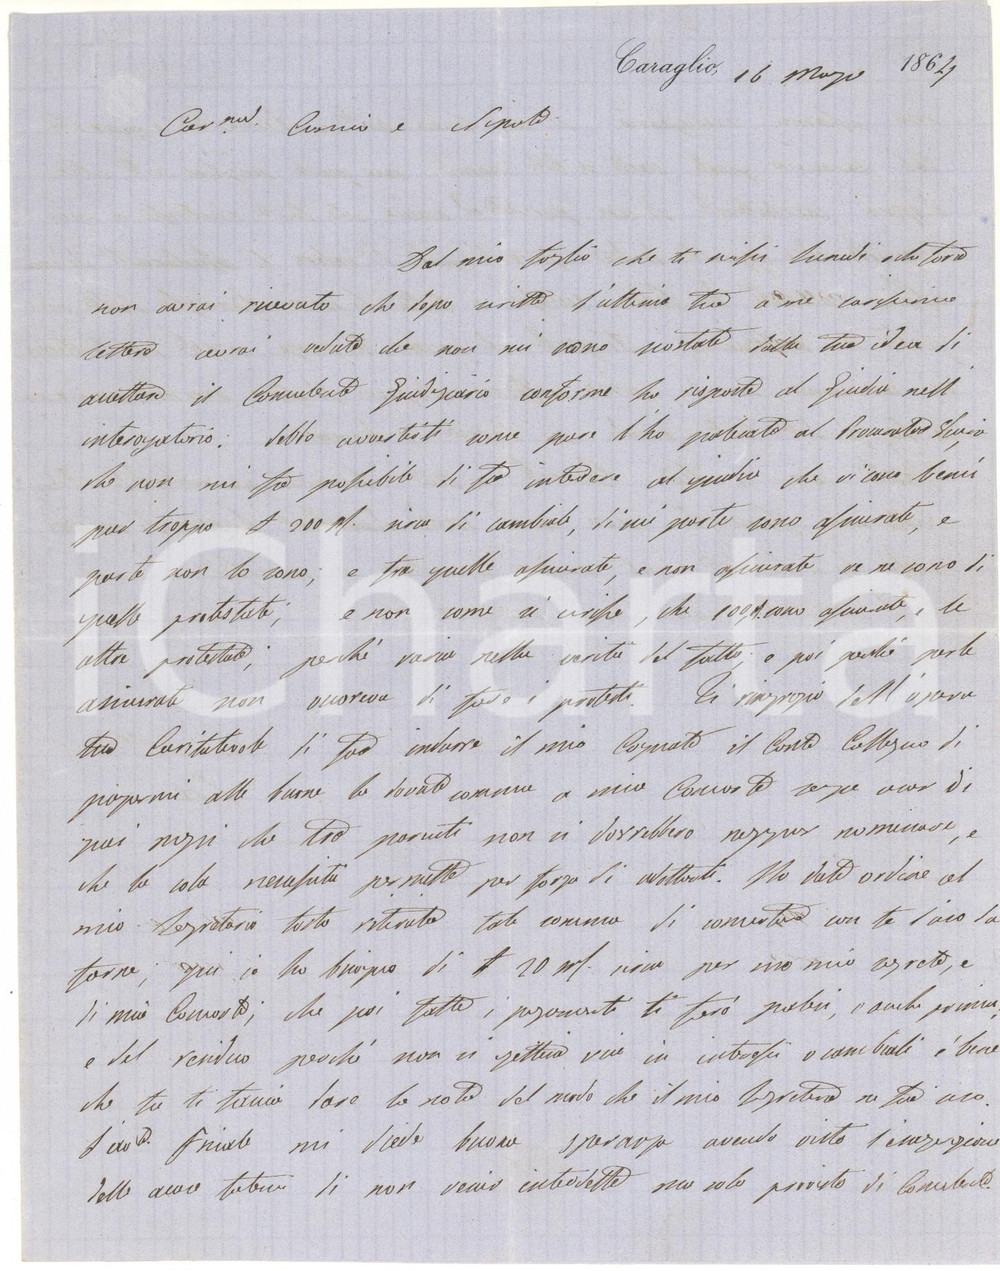 Caraglio, 16 Mag° 1864
Car.mi Cugino e Nipote
Dal mio foglio che ti scrissi lunedì
non avrai ricevuto che dopo scritta l'ultima tua a me carissima
lettera avrai veduto che non mi sono scostato dalla tua idea di
accettare il Consulente Giudiziario conforme ho risposto al Giudice nell'
interrogatorio: debbo avvertirti come pure l'ho palesato al Procuratore
che non mi fu possibile di far intendere al giudice che vi sono bensì
pur troppo 200 m. circa di cambiale, di cui parte sono assicurate, e
parte non lo sono; e fra quelle assicurate, e non assicurate ve ne sono di
quelle protestate; e non come si scrisse, che 100 m. sono assicurate, e le
altre protestate; perché varia nella verità del fatto; e poi perché per le
assicurate non occorreva di fare i protesti. Ti ringrazio dell'opera
tua caritatevole di far indurre il mio Cognato il Conte Collegno di
alle buone la dovuta somma a mia Consorte senza aver di
quei mezzi che tra parenti non si dovrebbero neppur nominare, e
che la sola necessità permette per forza di adottarli. Ho dato ordine al
mio Segretario tosto ritirata tale somma di concertare con te l'uso da
farne; qui io ho bisogno di 20 m. circa per uso mio segreto, e
di mia Consorte; che poi fatti i pagamenti ti farò palesi, e anche prima;
e del residuo perché non si getti via in interessi o cambiali è bene
che tu ti faccia dare la nota del modo che il mio Segretario ne fa uso.
L'avv. mi diede buona speranza avendo visto l'
delle di non venir interdetto ma solo provvisto di Consulente.
iCharta